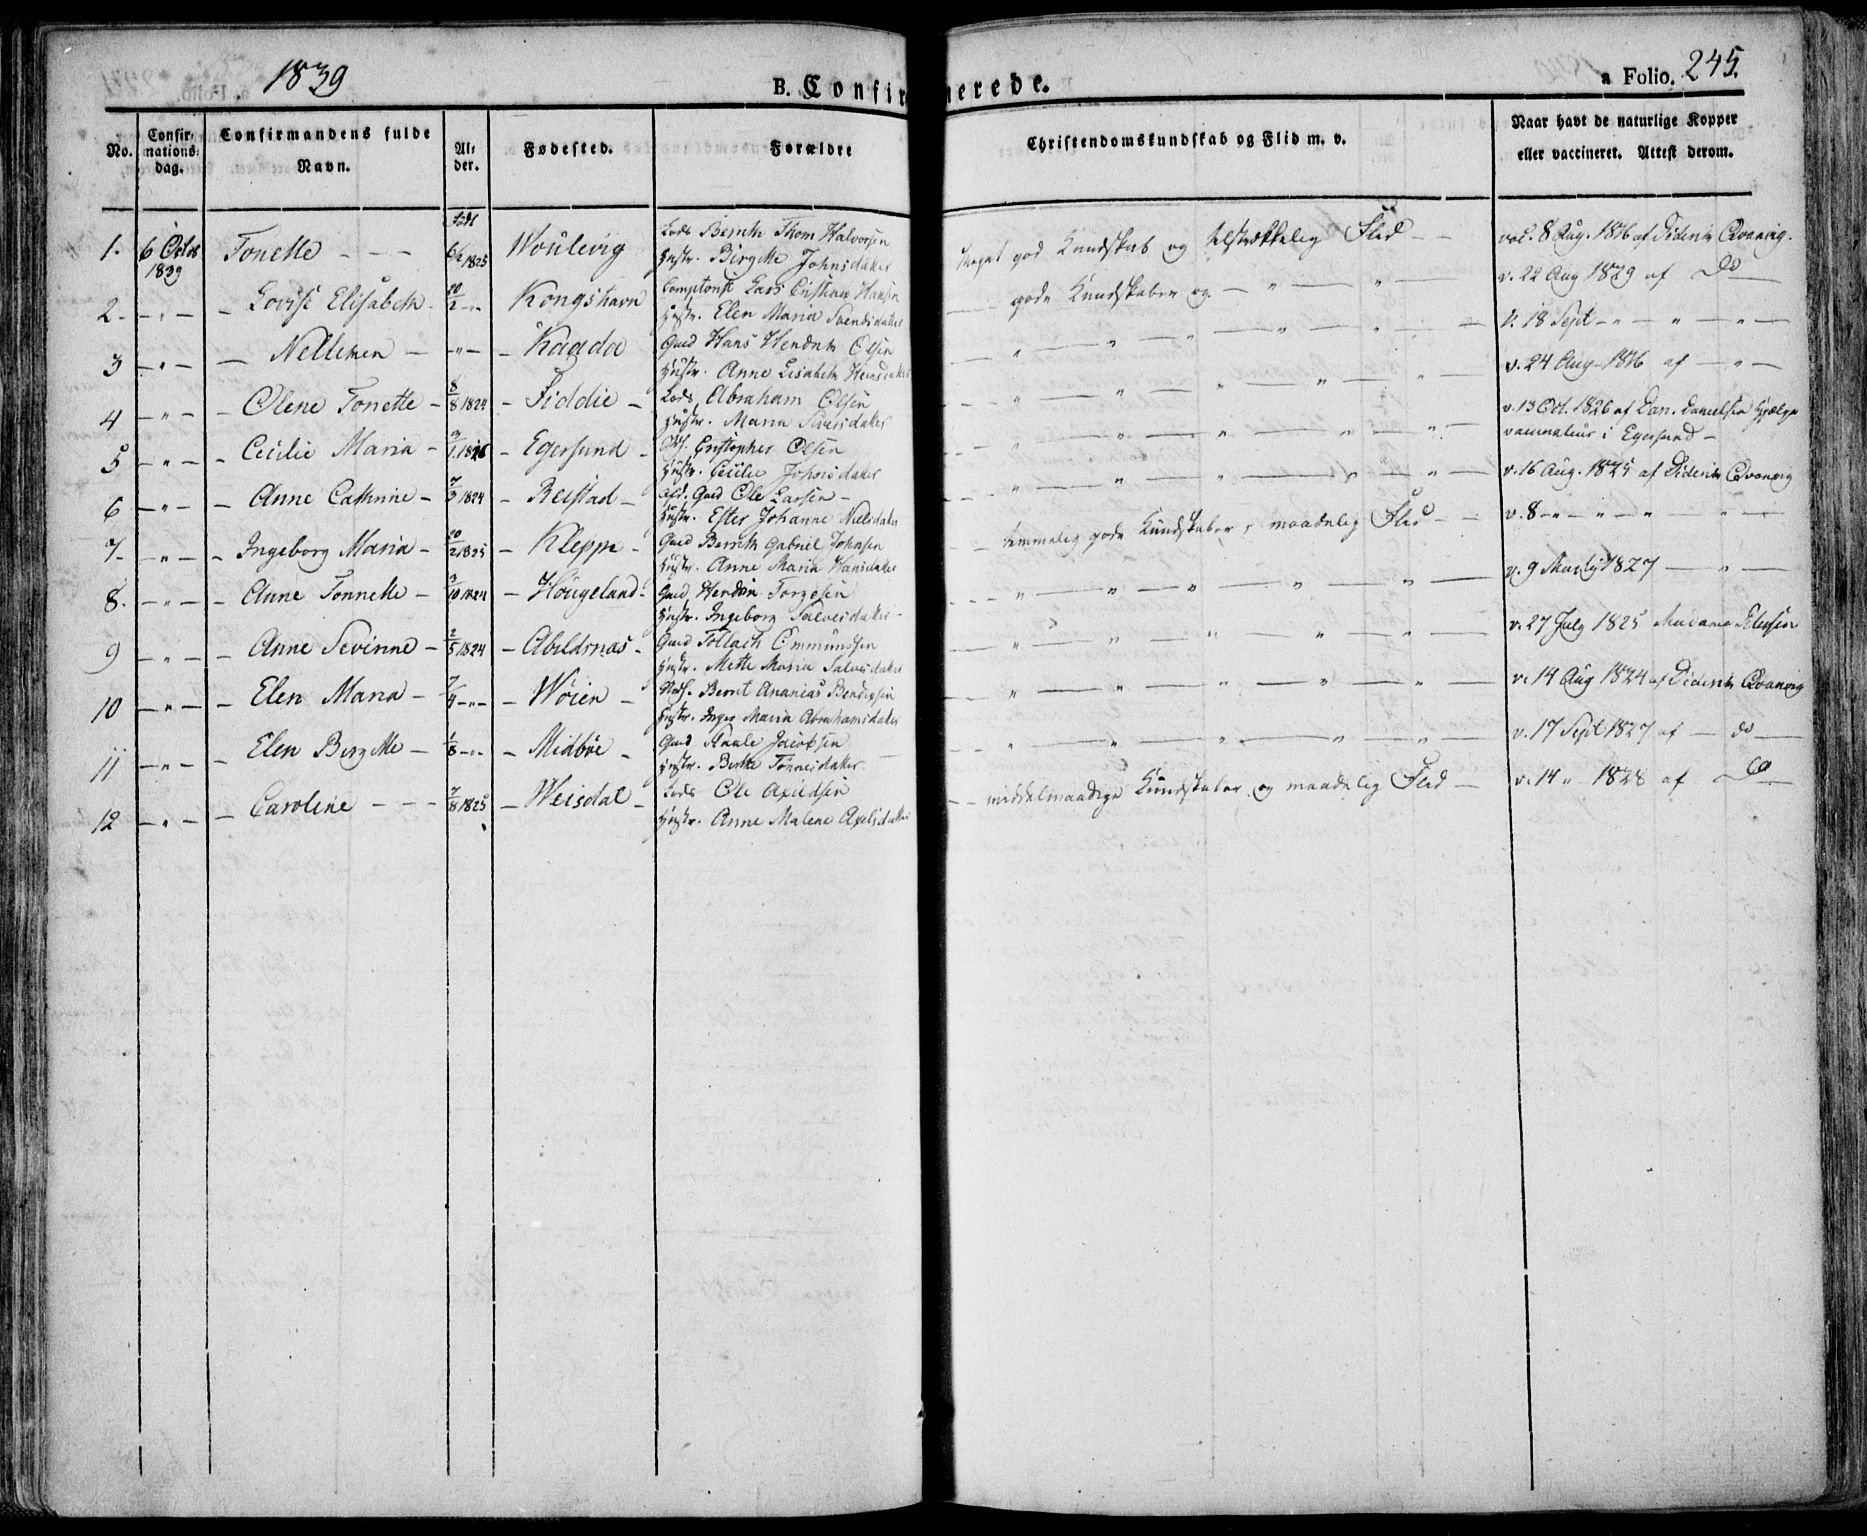 1839
B. Confir
merede.
a Folio. 245.
No.
Confir-
mations-
dag.
Confirmandens fulde
Navn.
Al-
der.
Fødested.
Forældre
Christendomskundskab og Flid m. v.
Naar havt de naturlige Kopper
eller vaccineret. Attest derom.
1. 6 Octob 1839 Tonette 6/2 1825 Woulevig
Lods Bernth Thom Halvorsen
Hustr. Birgitte Johnsdater
Meget god Kundskab og tilstrækkelig Flid
vac. 8 Aug. 1826 af Diderik Qvanvig.
2. - " - Lovise Elisabeth 20/2 - " - Kongshavn
Lars Cristian Hansen
Hustr. Elen Maria Svendsdatter
gode Kundskaber og - " - " -
v. 22 Aug 1829 af Do
3 - " - Nelliken - " - Raada
Gaard Hans Hendrik Olsen
Hustr. Anne Lisabeth
v. 18 Sept - " - " - " -
4 - " - Olene Tonette 8/8 1824 Fiddie
Lods Abraham Olsen
Hustr. Maria Siversdater
v. 24 Aug 1826 af - " -
5 - " - Cecilie Maria 3/1 1826 Egersund
Cristopher Olsen
Hustr. Cecilie Johnsdater
v. 13 Oct. 1826 af Dan. Danielsen Hjælpe
vaccinateur i Egersund -
6 - " - Anne Cathrine 7/3 1824 Reistad
Gaard Ole Larsen
Hustr. Ester Johanne Nielsdater
v. 16 Aug. 1825 af Diderik Qvanvig
7 - " - Ingeborg Maria 20/2 1825 Kleppe
Gaard Bernth Gabriel Johnsen
Hustr. Anne Maria Hansdater
temmelig gode Kundskaber, maadelig Flid
v. 8 - " - " - " -
8. - " - Anne Tonnette 3/10 1824 Hougeland
Gaard Hendrik Torgesen
Hustr. Ingeborg Salvesdater
v. 9 1827 - " -
9 - " - Anne Sevrinne 2/5 1824 Abildsnæs
Gaard Tollach Ommundsen
Hustr. Mette Maria Salvesdater
v. 27 July 1825 Madame
10 - " - Elen Maria 7/4 - " - Wøien
Bernt Ananias Bendixsen
Hustr. Inger Maria Abrahamsdater
v. 14 Aug 1824 af Diderik Qvanvig
11 - " - Elen Birgitte 1/8 - " - Midbøe
Gaard Jacobsen
Hustr. Berthe Tønnesdater
v. 17 Sept 1827 af - do -
12 - " - Caroline 7/8 1825 Weisdal
Lods Ole Axeldsen
Hustr. Anne Malene Axelsdater
middelmaadige Kundskaber og maadelig Flid
v. 14 " 1828 af - Do